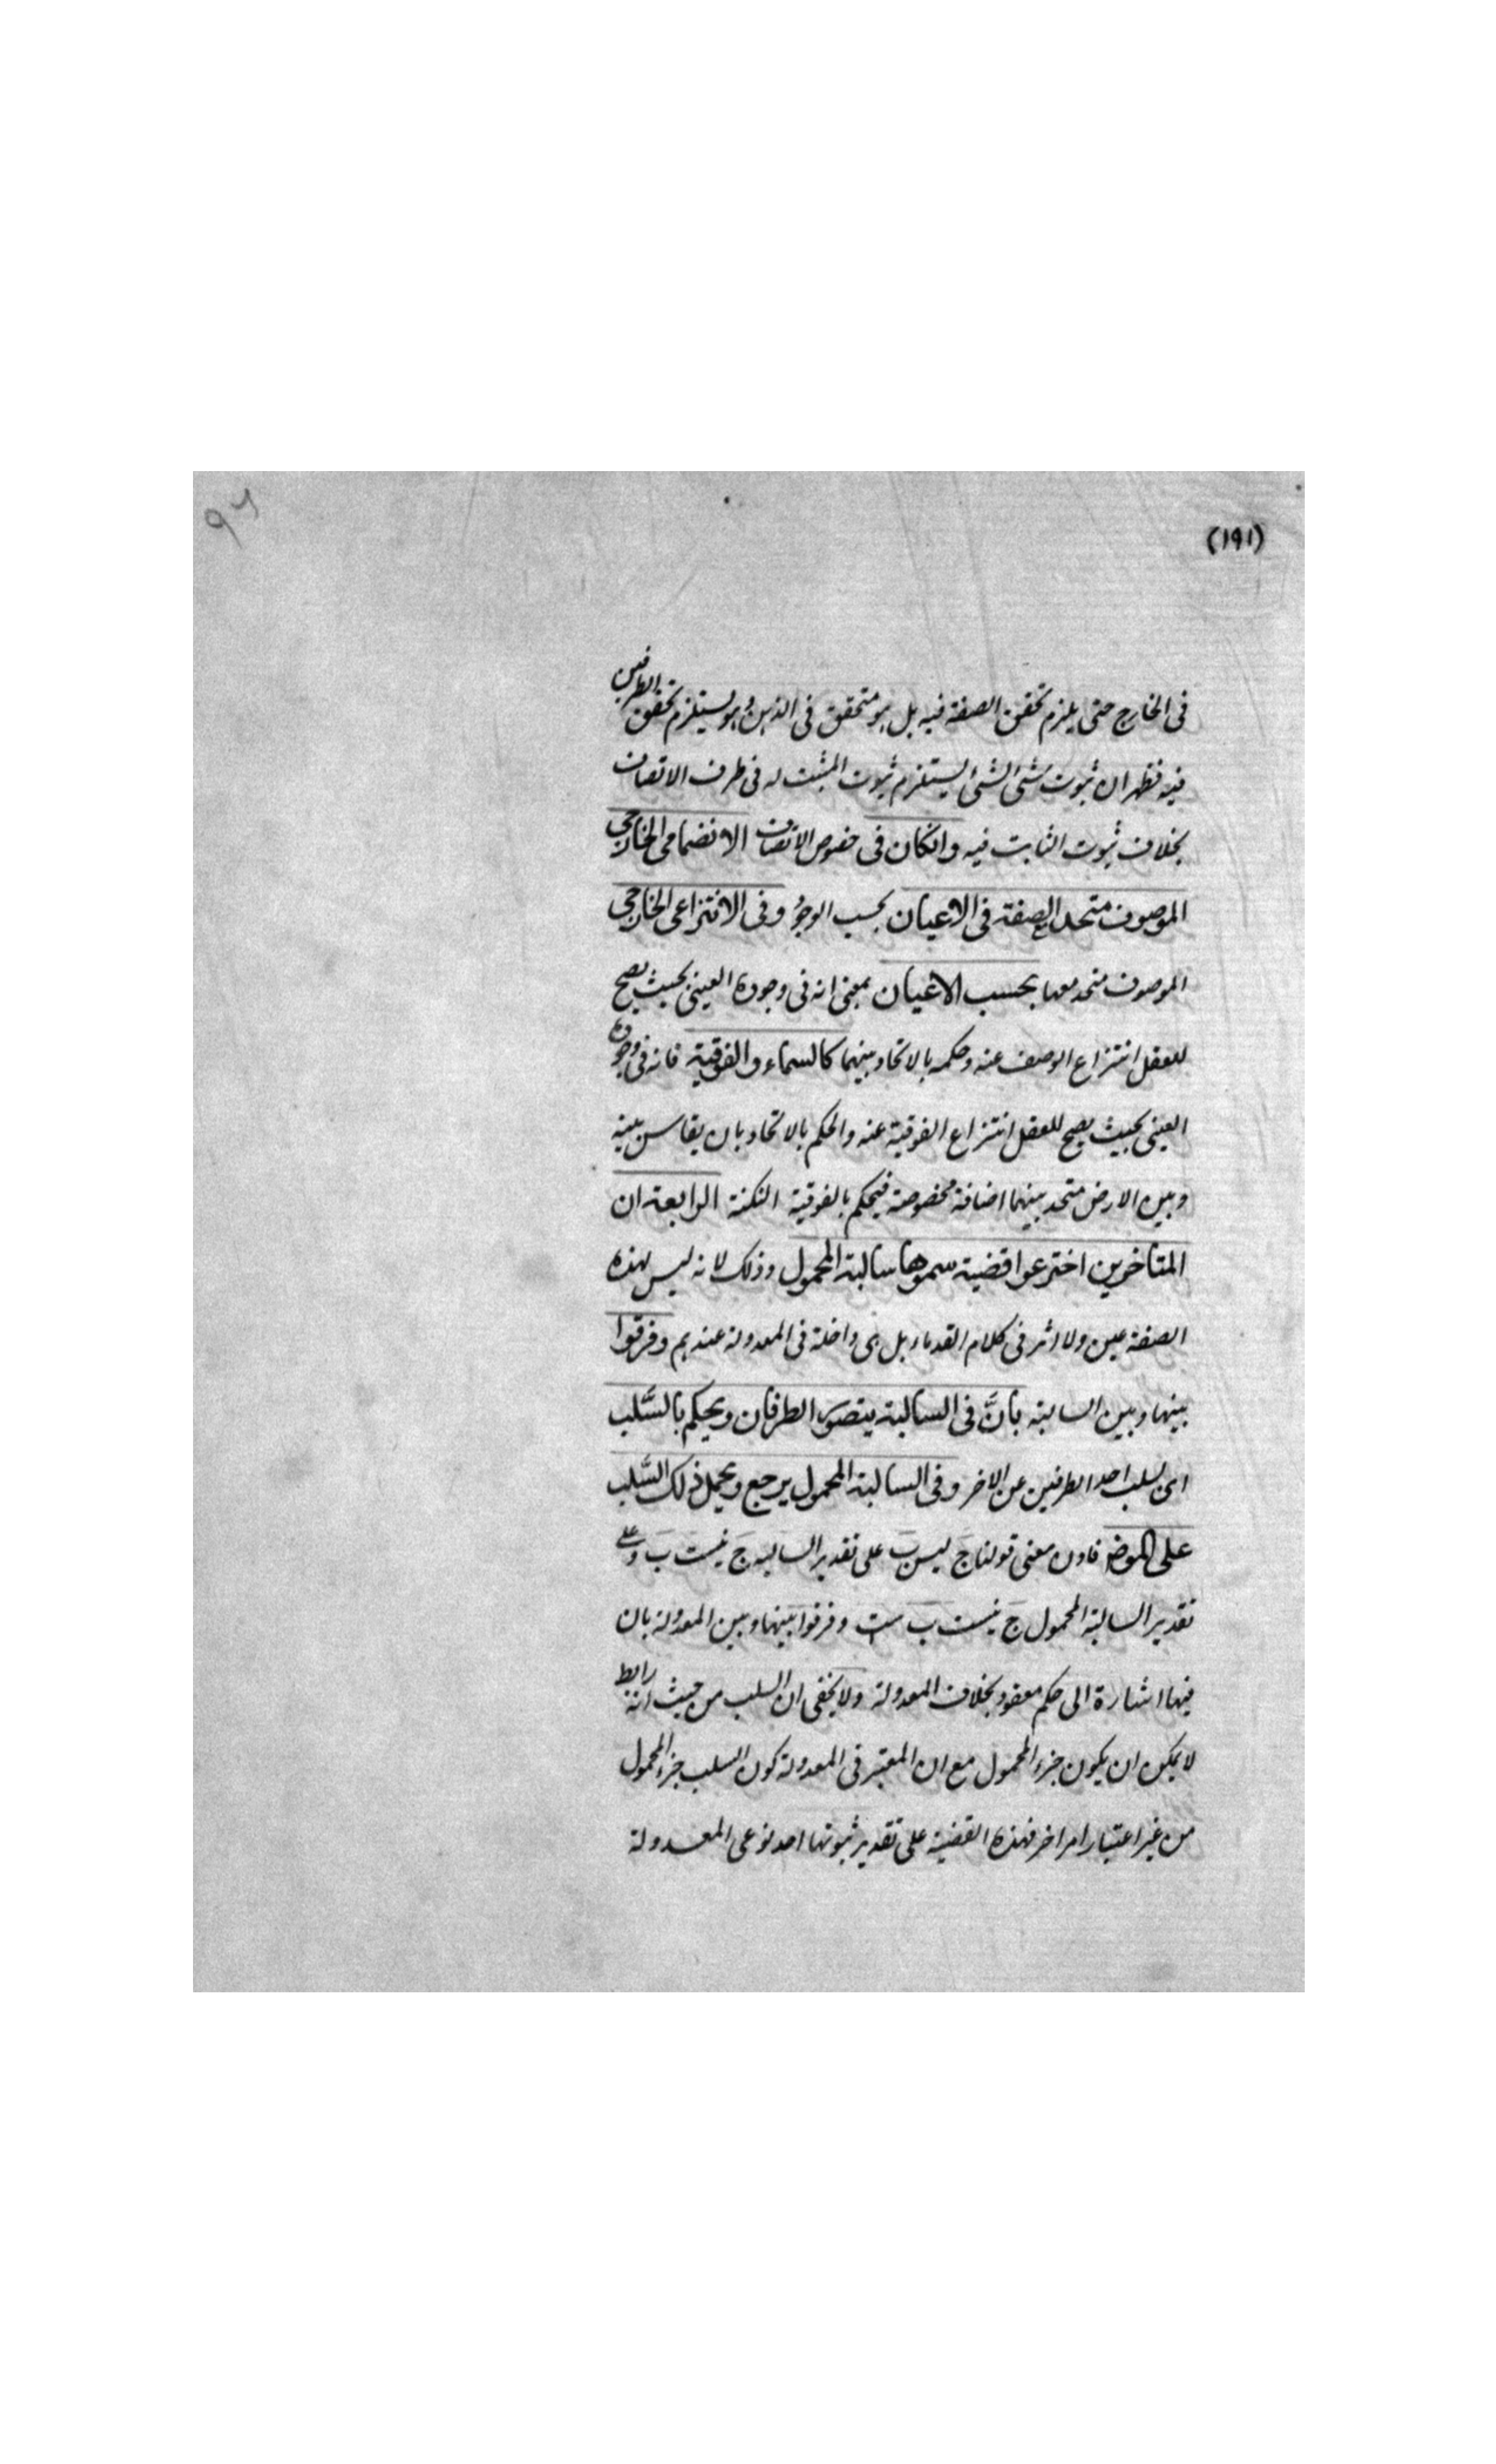 ٩٦
(١٩١)
فى الخارج حتى يلزم تحقق الصفة فيه بل هو متحقق فى الذهن وهو يستلزم تحقق الطرفين
فيه فظهر ان ثبوت شئ لشئ يستلزم ثبوت المثبت له فى ظرف الاتصاف
بخلاف ثبوت الثابت فيه وانكان فى خصوص الاتصاف الانضمامى الخارجى
الموصوف متحد مع الصفة فى الاعيان بحسب الوجود وفى الانتزاعى الخارجى
الموصوف متحد معها بحسب الاعيان بمعنى انه فى وجوده العينى بحيث يصح
للعقل انتزاع الوصف عنه وحكمه بالاتحاد بينهما كالسماء والفوقية فانه فى وجوده
العينى بحيث يصح للعقل انتزاع الفوقية عنه والحكم بالاتحاد بان يقاس بينه
وبين الارض متحد بينهما اضافة مخصوصة فيحكم بالفوقية النكتة الرابعة ان
المتاخرين اخترعوا قضية سموها سالبة المحمول وذلك لانه ليس لهذه
الصفة عين ولا اثر فى كلام القدماء بل هى داخلة فى المعدولة عندهم وفرقوا
بينها وبين السالبة بانَّ فى السالبة يتصور الطرفان ويحكم بالسَّلب
اى بسلب احد الطرفين عن الاخر وفى السالبة المحمول يرجع ويحمل ذلك السَّلب
على الموض فاذن معنى قولنا جَ ليس بَ على تقدير السالبه جَ نيست بَ وعلى
تقدير السالبة المحمول جَ نيست ب ست وفرقوا بينها وبين المعدولة بان
فيها اشارة الى حكم معقود بخلاف المعدولة ولا يخفى ان السلب من حيث انه رابط
لا يمكن ان يكون جزء المحمول مع ان المعتبر فى المعدولة كون السلب جزء المحمول
من غير اعتبار امر اخر فهذه القضية على تقدير ثبوتها احد نوعى المعدولة